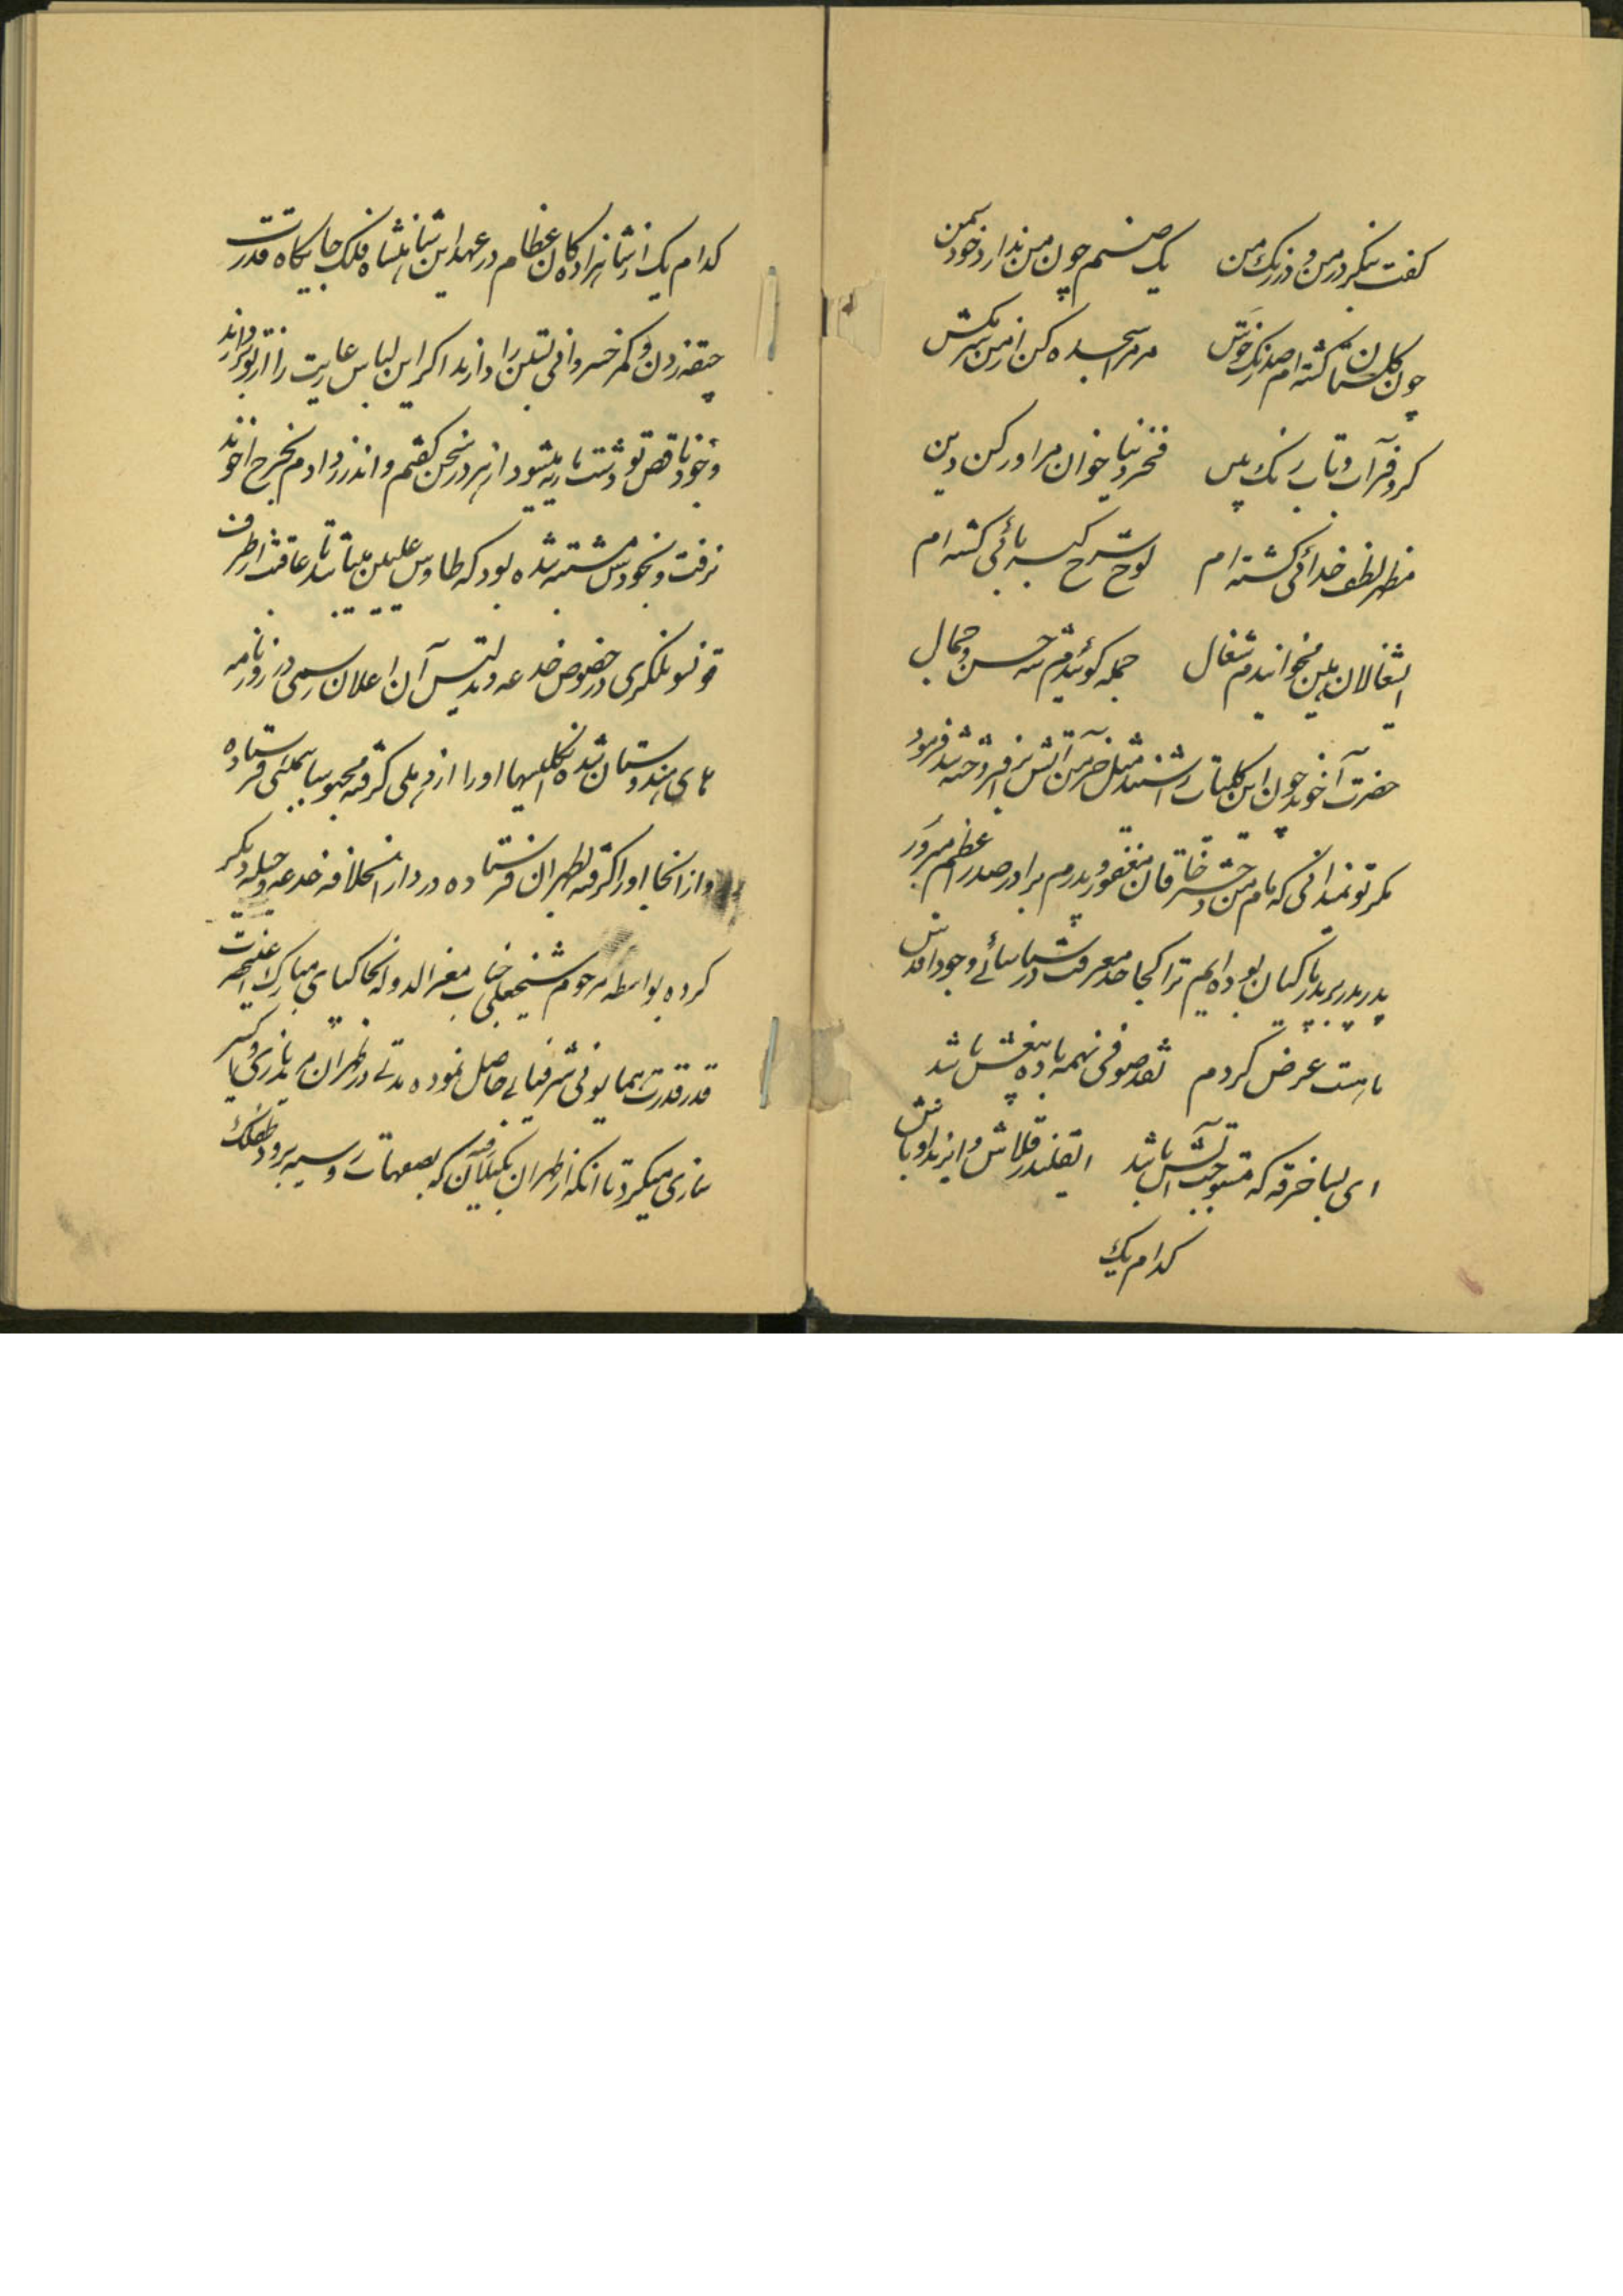 کفت بنکر در من و در رنک من یک صنم چون من ندارد خود شمن
چون کلستان کشته ام صد رنک خوش مر مرا سجده کن از من سر مکش
کر و فر و آب و تاب و رنک بین فخر دنیا خوان مرا و رکن دین
مظهر لطف خدائی کشته ام لوح شرح کبریائی کشته ام
ایشغالان هین مخوانیدم شغال جمله کوئیدم شه حسن و جمال
حضرت آخوند چون این کلمات را شنید مثل خرمن آتش برافروخته شد فرمود
مکر تو نمیدانی که مام من دختر خاقان مغفور و پدرم برادر صدر اعظم مبرور
پدر بر پدر پاکیان بوده ایم ترا کجا حد معرفت و شناسائی وجود اقدس
ماهست عرض کردم نقد صوفی نه همه باده بیغش باشد
ای بسا خرقه که مستوجب آتش باشد ایقلندر قلاش و ایرند اوباش
کدام یک
کدام یک از شاهزاده کان عظام در عهد این شاهنشاه فلک جایکاه قدرت
چپقه زدن و کمر خسروانی بستن را دارند اکر این لباس عاریت را از تو بردارند
وجود ناقص تو زشت باریه میشود از هر در سخن کفتیم و اندرز دادم بخرج آخوند
نرفت و بخودش مشتبه شده بود که طاوس علیین میباشد تا عاقبت از طرف
قونسولکری در خصوص خدعه و تدلیس آن اعلان رسمی در روزنامه
های هندوستان شده انکلیسیها او را از دهلی کرفته محبوسا بمبئی فرستاده
و از آنجا او را کرفته بطهران فرستاده در دار الخلافه خدعه و حیله دیکر
کرده بواسطه مرحوم شیخعلی جناب معز الدوله بخاکپای مبارک اعلیحضرت
قدر قدرت همایونی شرفیابی حاصل نموده مدتی در طهران مریدبازی و کیمیا
سازی میکرد تا آنکه از طهران بکیلان که بصفهات روسیه برود